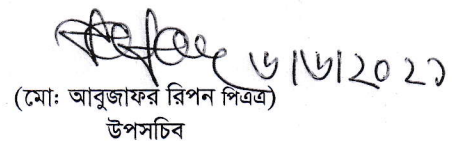 ৬|৬|২০২১
(মোঃ আবুজাফর রিপন পিএএ)
উপসচিব